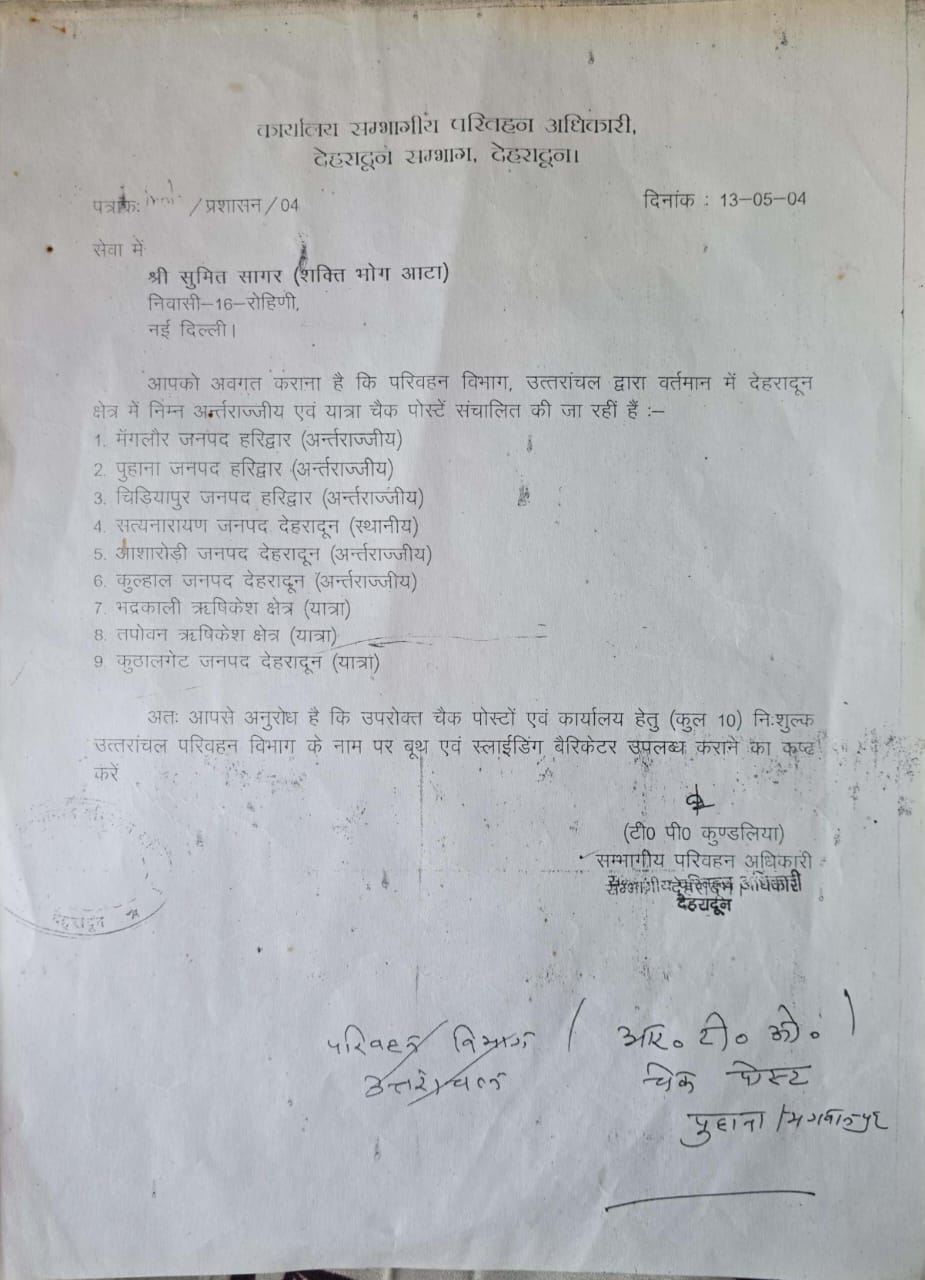 कार्यालय सम्भागीय परिवहन अधिकारी,
देहरादून सम्भाग, देहरादून।
पत्रांक: /प्रशासन/04
दिनांक : 13-05-04
सेवा में
श्री सुमित सागर (शक्ति भोग आटा)
निवासी-16-रोहिणी,
नई दिल्ली।
आपको अवगत कराना है कि परिवहन विभाग, उत्तरांचल द्वारा वर्तमान में देहरादून
क्षेत्र में निम्न अर्न्तराज्जीय एवं यात्रा चैक पोस्टें संचालित की जा रहीं हैं :-
1. मॅगलौर जनपद हरिद्वार (अर्न्तराज्जीय)
2. पुहाना जनपद हरिद्वार (अर्न्तराज्जीय)
3. चिडियापुर जनपद हरिद्वार (अर्न्तराज्जीय)
4. सत्यनारायण जनपद देहरादून (स्थानीय)
5. आशारोड़ी जनपद देहरादून (अर्न्तराज्जीय)
6. कुल्हाल जनपद देहरादून (अर्न्तराज्जीय)
7. भद्रकाली ऋषिकेश क्षेत्र (यात्रा)
8. तपोवन ऋषिकेश क्षेत्र (यात्रा)
9. कुठालगेट जनपद देहरादून (यात्रा)
अतः आपसे अनुरोध है कि उपरोक्त चैक पोस्टों एवं कार्यालय हेतु (कुल 10) निःशुल्क
उत्तरांचल परिवहन विभाग के नाम पर बूथ एवं स्लाईडिंग बैरिकेटर उपलब्ध कराने का कष्ट
करें
(टी0 पी0 कुण्डलिया)
सम्भागीय परिवहन अधिकारी
सम्भागीय परिवहन अधिकारी
देहरादून
देहरादून
परिवहन विभाग
उत्तरांचल
(आर. टी. ओ.)
चेक पोस्ट
पुहाना/भगवानपुर